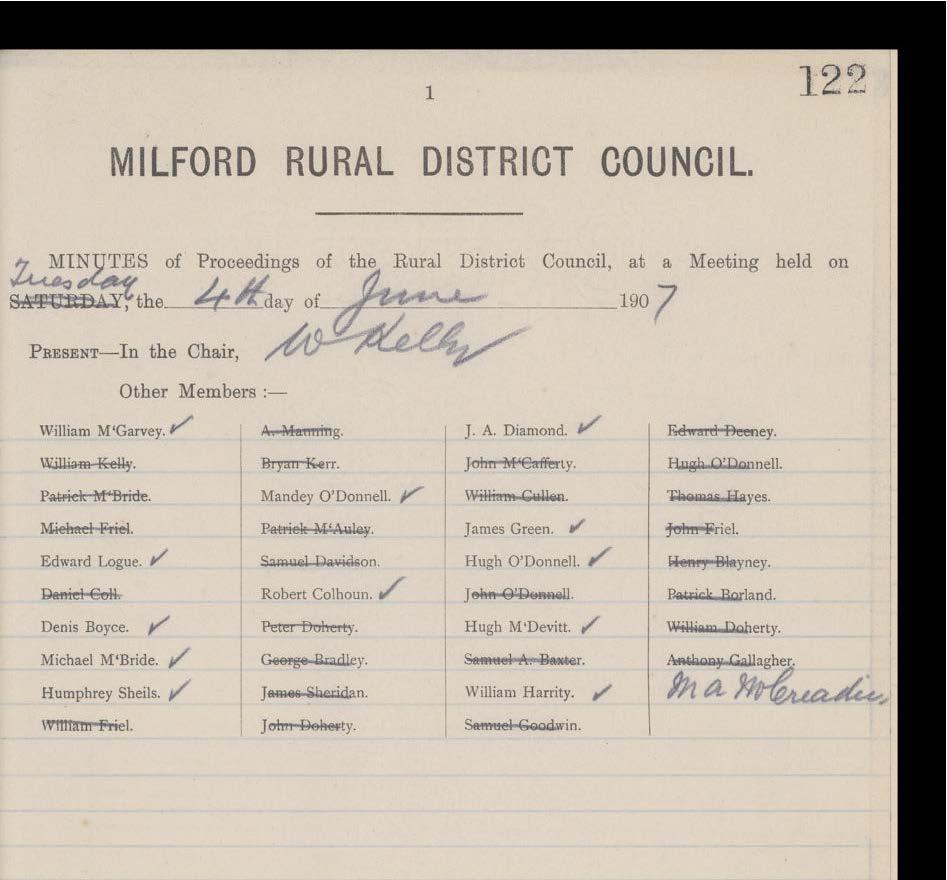 122
1
MILFORD RURAL DISTRICT COUNCIL.
MINUTES of Proceedings of the Rural District Council, at a Meeting held on
Tuesday
SATURDAY, the 4th day of June 1907
PRESENT—In the Chair, W Kelly
Other Members :—
William M‘Garvey. ✓
William Kelly.
Patrick M‘Bride.
Michael Friel.
Edward Logue. ✓
Daniel Coll.
Denis Boyce. ✓
Michael M‘Bride. ✓
Humphrey Sheils. ✓
William Friel.
A. Manning.
Bryan Kerr.
Mandey O’Donnell. ✓
Patrick M‘Auley.
Samuel Davidson.
Robert Colhoun. ✓
Peter Doherty.
George Bradley.
James Sheridan.
John Doherty.
J. A. Diamond. ✓
John M‘Cafferty.
William Cullen.
James Green. ✓
Hugh O’Donnell. ✓
John O’Donnell.
Hugh M‘Devitt. ✓
Samuel A. Baxter.
William Harrity. ✓
Samuel Goodwin.
Edward Deeney.
Hugh O’Donnell.
Thomas Hayes.
John Friel.
Henry Blayney.
Patrick Borland.
William Doherty.
Anthony Gallagher.